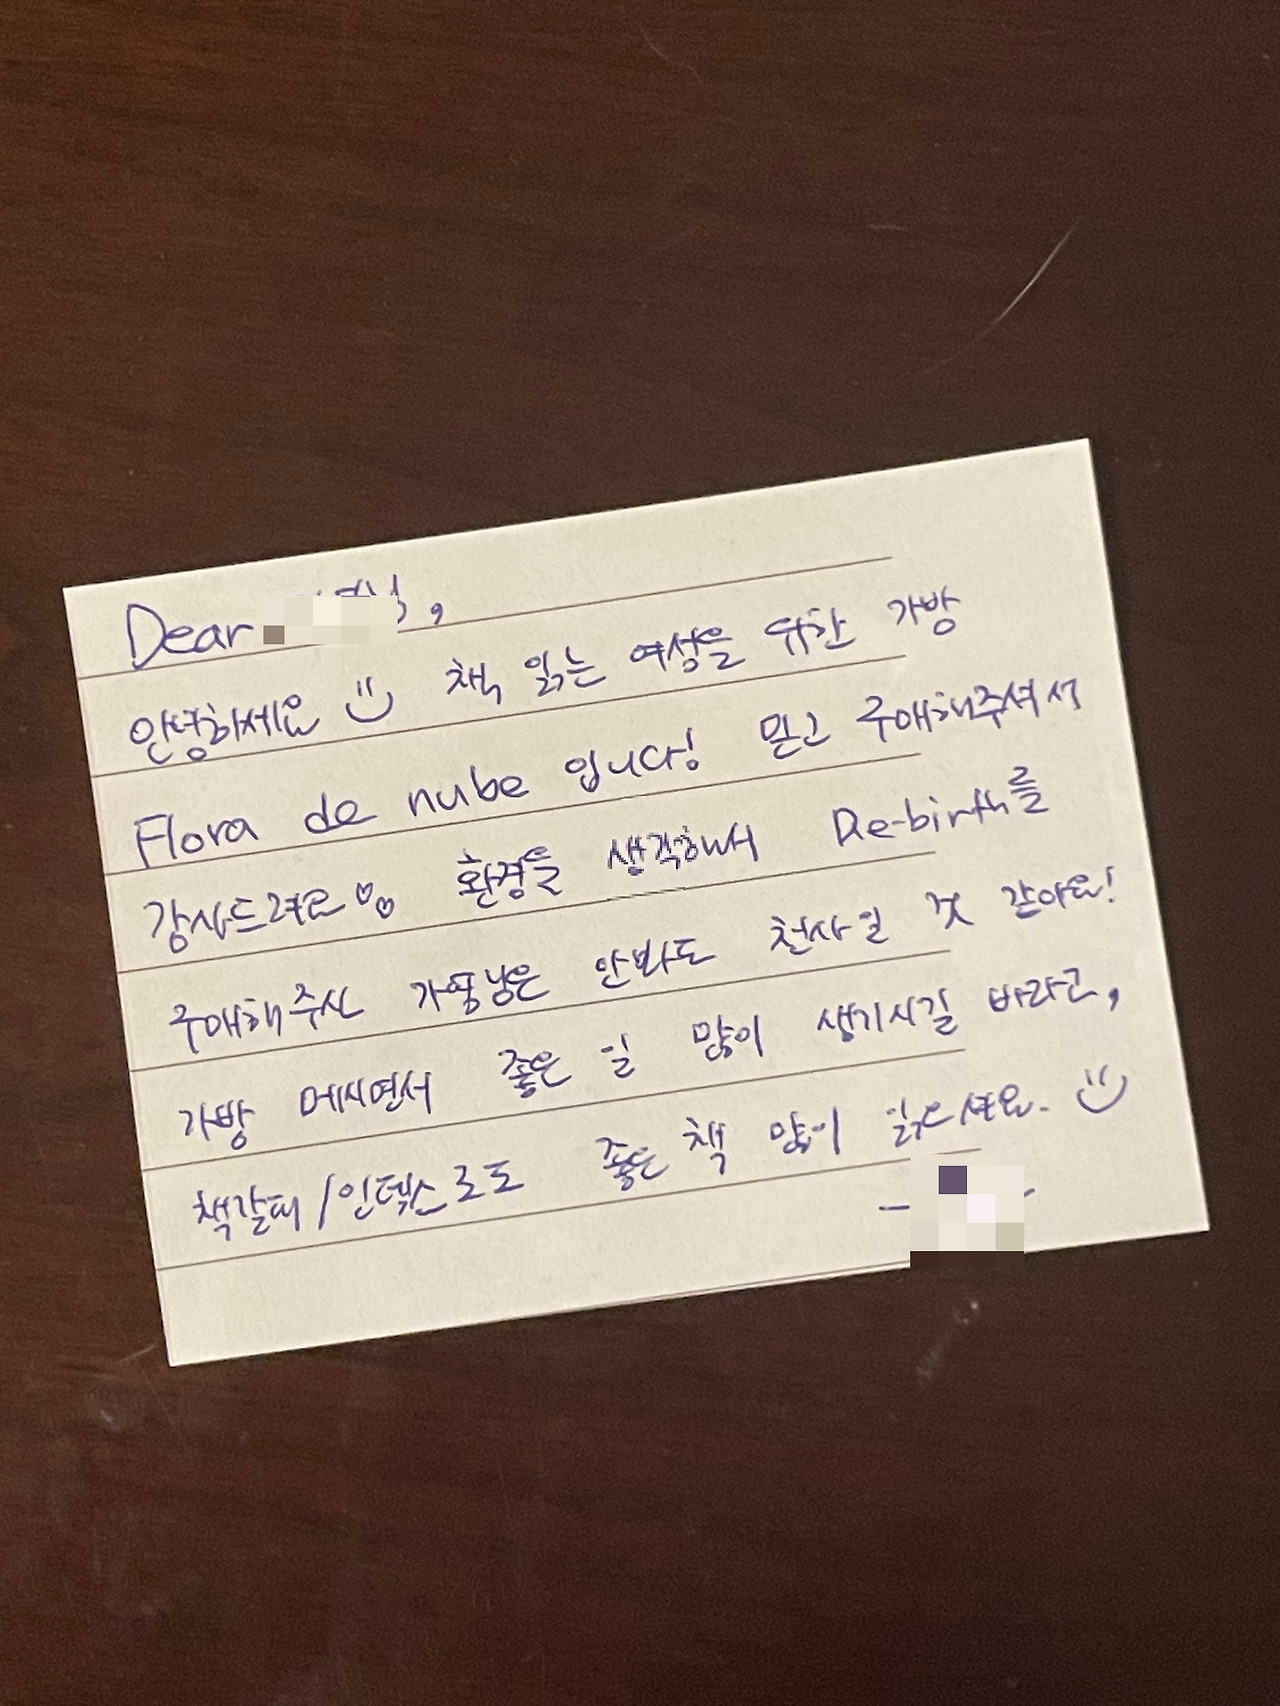 Dear
안녕하세요 책 읽는 여성을 위한 가방
Flora de nube 입니다! 믿고 구매해주셔서
감사드려요 ♡♡ 환경을 생각해서 Re-birth를
구매해주신 님은 안봐도 천사일 것 같아요!
가방 메시면서 좋은 일 많이 생기시길 바라고,
책갈피/인덱스로도 좋은 책 많이 읽으셔요.